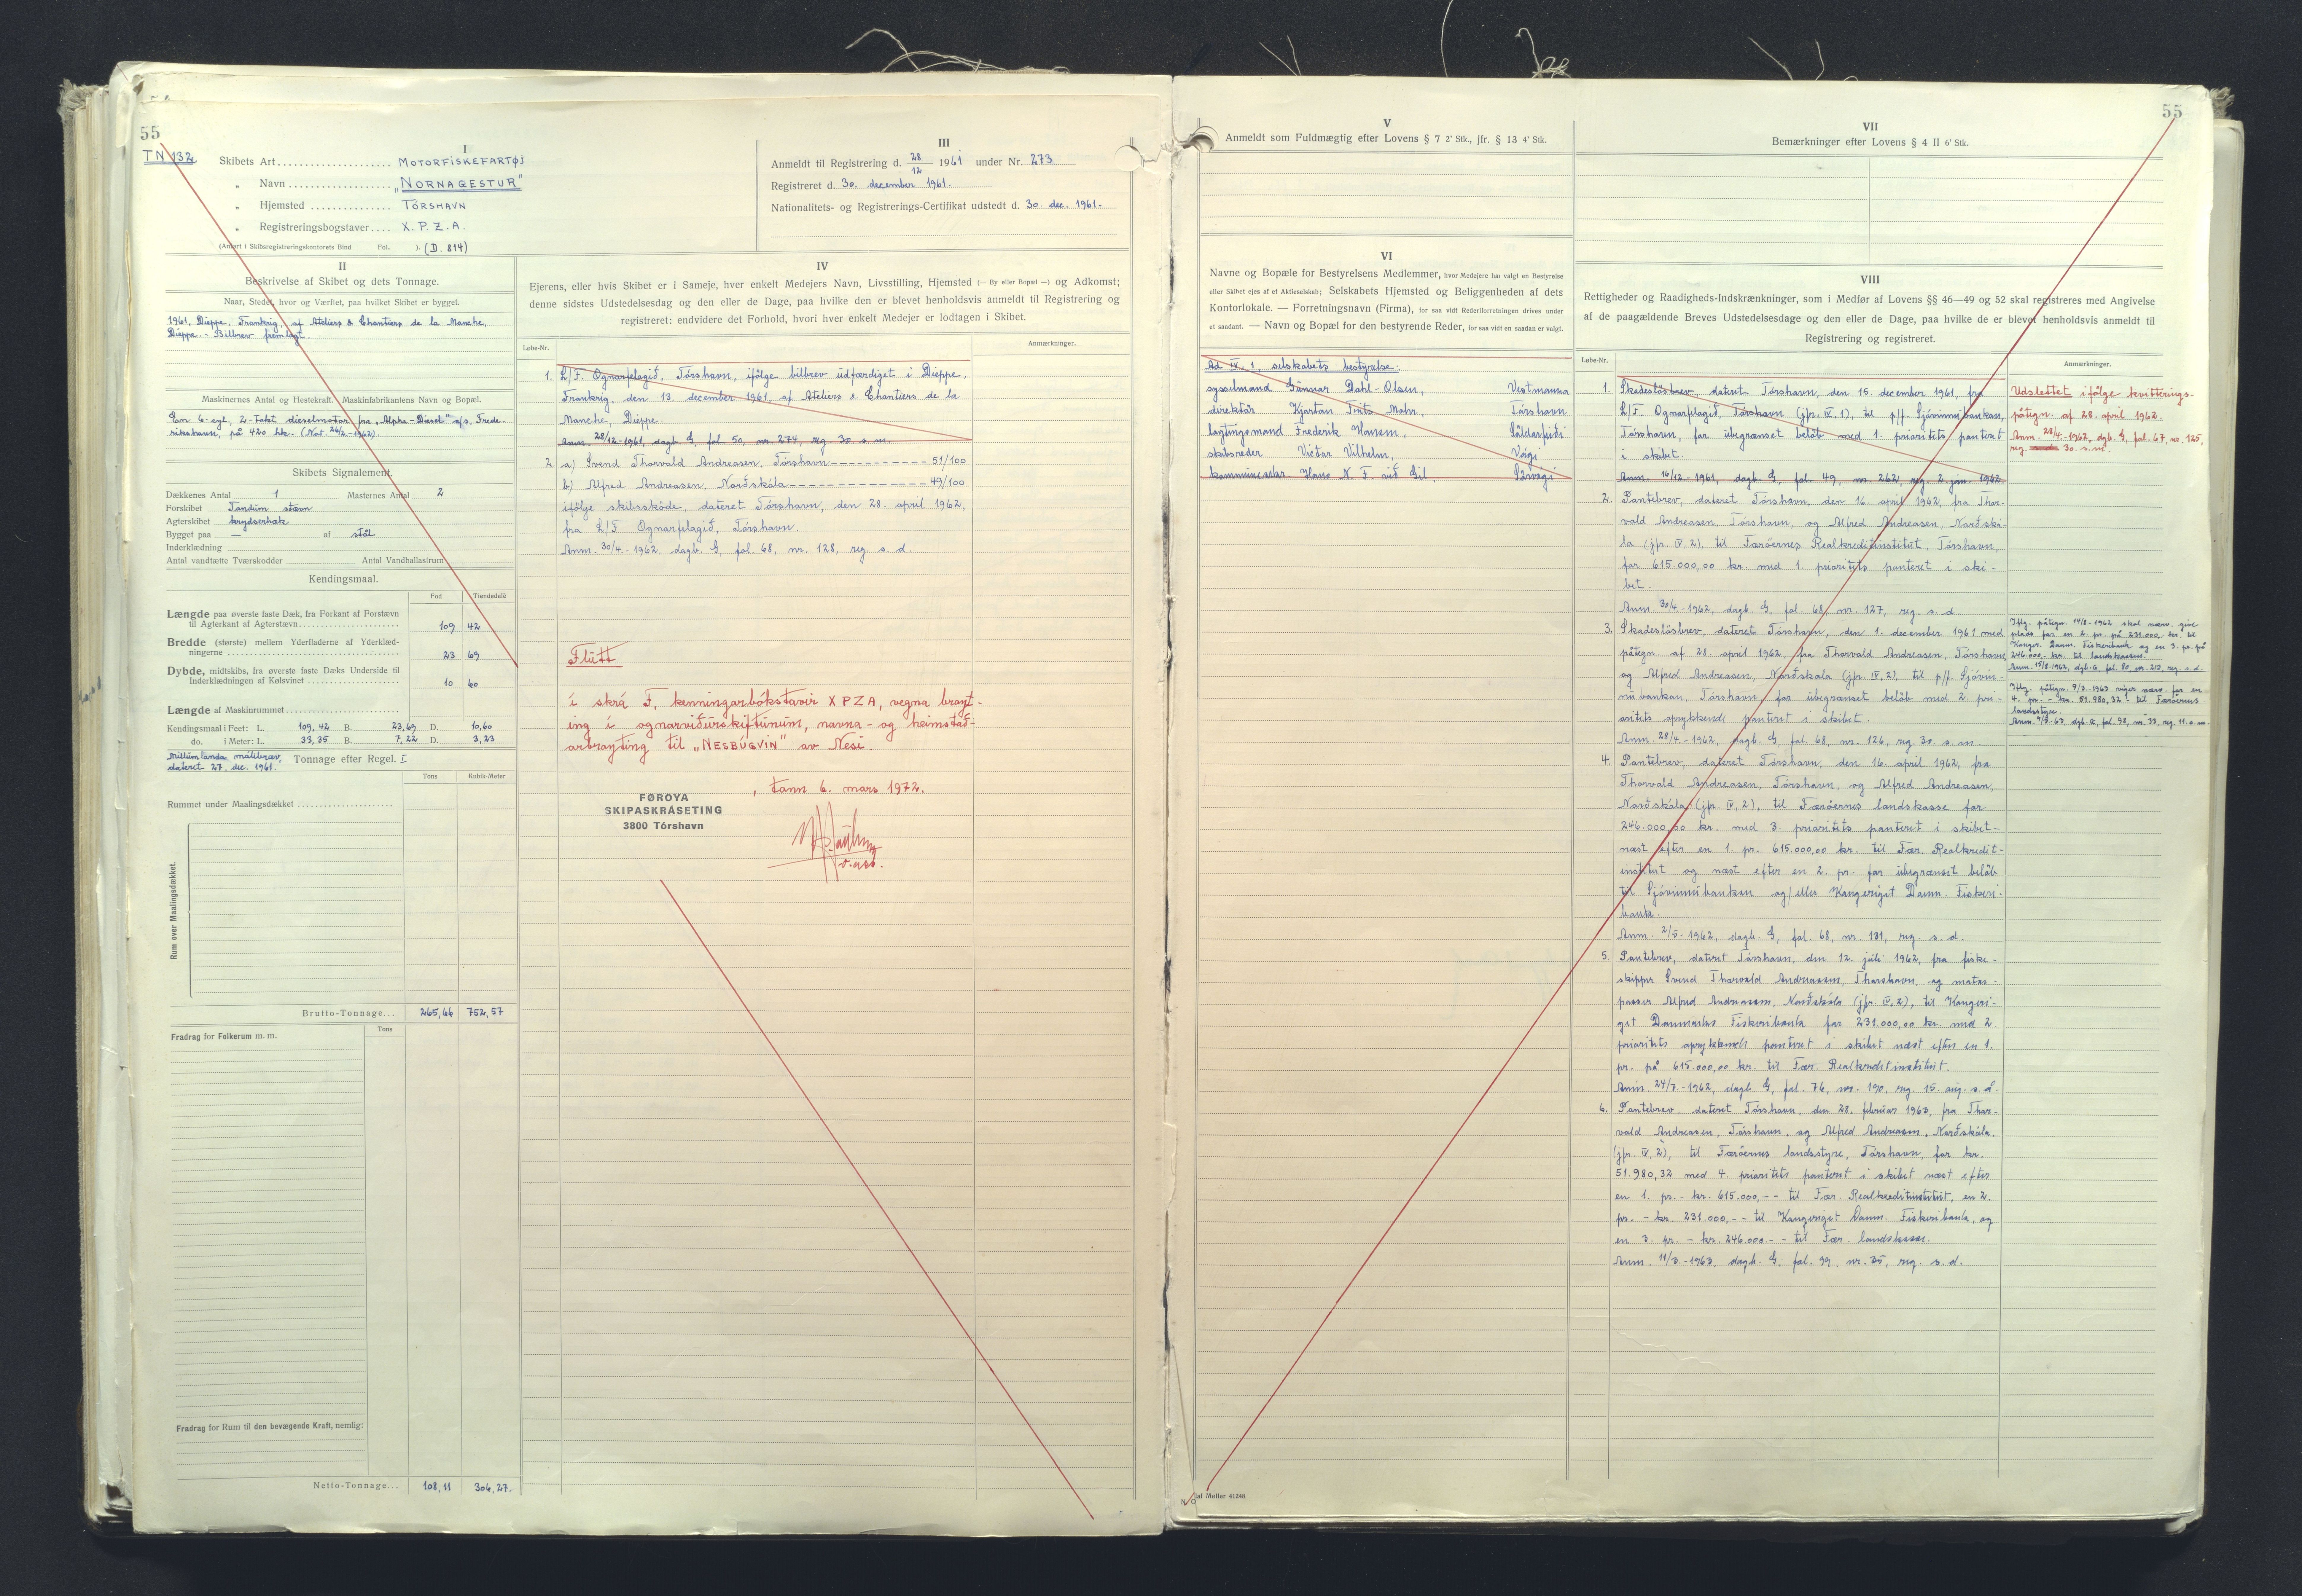 55
TN 132
I
Skibets Art.................... MOTORFISKEFARTØJ
„ Navn.................. „NORNAGESTUR"
„ Hjemsted .............. TÓRSHAVN
„ Registreringsbogstaver.... X.P.Z.A.
(Anført i Skibsregistreringskontorets Bind Fol. ). (D. 814)
III
Anmeldt til Registrering d. 28/12 1961 under Nr. 273
Registreret d. 30. december 1961.
Nationalitets- og Registrerings-Certifikat udstedt d. 30. dec. 1961.-
II
Beskrivelse af Skibet og dets Tonnage.
Naar, Stedet, hvor og Værftet, paa hvilket Skibet er bygget.
1961, Dieppe, Frankrig, af Ateliers & Chantiers de la Manche,
Dieppe. - Bilbrev fremlagt.
Maskinernes Antal og Hestekraft. Maskinfabrikantens Navn og Bopæl.
Een 6-cyl. 2-takt dieselmotor fra „Alpha-Diesel" a/s, Frede-
rikshavn, på 420 hk. (Not. 26/2-1962).
Skibets Signalement.
Dækkenes Antal 1 Masternes Antal 2
Forskibet Tandum stævn
Agterskibet krydserhæk
Bygget paa — af stål
Inderklædning
Antal vandtætte Tværskodder Antal Vandballastrum
Kendingsmaal.
Fod Tiendedele
Længde paa øverste faste Dæk, fra Forkant af Forstævn
til Agterkant af Agterstævn 109 42
Bredde (største) mellem Yderfladerne af Yderklæd-
ningerne 23 69
Dybde, midtskibs, fra øverste faste Dæks Underside til
Inderklædningen af Kølsvinet 10 60
Længde af Maskinrummet
Kendingsmaal i Feet: L. 109,42 B. 23,69 D. 10,60
do. i Meter: L. 33,35 B. 7,22 D. 3,23
Millumlanda málibræv, Tonnage efter Regel. I
dateret 27. dec. 1961.
Tons Kubik-Meter
Rummet under Maalingsdækket
Rum over Maalingsdækket.
Brutto-Tonnage... 265,66 752,57
Fradrag for Folkerum m. m. Tons
Fradrag for Rum til den bevægende Kraft, nemlig:
Netto-Tonnage... 108,11 306,27.
IV
Ejerens, eller hvis Skibet er i Sameje, hver enkelt Medejers Navn, Livsstilling, Hjemsted (— By eller Bopæl —) og Adkomst;
denne sidstes Udstedelsesdag og den eller de Dage, paa hvilke den er blevet henholdsvis anmeldt til Registrering og
registreret: endvidere det Forhold, hvori hver enkelt Medejer er lodtagen i Skibet.
Løbe-Nr. Anmærkninger.
1. L/F. Ognarfelagið, Tórshavn, ifølge bilbrev udfærdiget i Dieppe,
Frankrig, den 13. december 1961, af Ateliers & Chantiers de la
Manche, Dieppe.
Anm. 28/12-1961, dagb. G, fol 50, nr. 274, reg 30. s. m.
2. a) Svend Thorvald Andreasen, Tórshavn - - - - - - - - - - 51/100
b) Alfred Andreasen, Norðskála - - - - - - - - - - - - - - 49/100
ifölge skibsskøde, dateret Tórshavn, den 28. april 1962,
fra L/F Ognarfelagið, Tórshavn.
Anm. 30/4.-1962, dagb. G, fol. 68, nr. 128, reg. s. d.
Flutt
í skrá F, kenningarbókstavir XPZA, vegna broyt-
ing í ognarviðurskiftunum, navna- og heimstað-
arbroyting til „NESBÚGVIN" av Nesi.
FØROYA
SKIPASKRÁSETING
3800 Tórshavn
, tann 6. mars 1972.
V
Anmeldt som Fuldmægtig efter Lovens § 7 2' Stk., jfr. § 13 4' Stk.
VI
Navne og Bopæle for Bestyrelsens Medlemmer, hvor Medejere har valgt en Bestyrelse
eller Skibet ejes af et Aktieselskab; Selskabets Hjemsted og Beliggenheden af dets
Kontorlokale. — Forretningsnavn (Firma), for saa vidt Rederiforretningen drives under
et saadant. — Navn og Bopæl for den bestyrende Reder, for saa vidt en saadan er valgt.
Ad IV, 1, selskabets bestyrelse:
sysselmand Gunnar Dahl-Olsen, Vestmanna
direktör Kjartan Mohr, Tórshavn
lagtingsmand Frederik Hansen, Saldarfirði
skibsreder Viktor Vilhelm, Vági
kommunelær Hans N. F. við Gil, Sørvági
Olaf Møller 41246
55
VII
Bemærkninger efter Lovens § 4 II 6' Stk.
VIII
Rettigheder og Raadigheds-Indskrænkninger, som i Medfør af Lovens §§ 46—49 og 52 skal registreres med Angivelse
af de paagældende Breves Udstedelsesdage og den eller de Dage, paa hvilke de er blevet henholdsvis anmeldt til
Registrering og registreret.
Løbe-Nr. Anmærkninger.
1. Skadeslösbrev, dateret Tórshavn, den 15. december 1961, fra
L/F. Ognarfelagið, Tórshavn (jfr. IV, 1), til p/f. Sjóvinnubankan,
Tórshavn, for ubegrænset belöb med 1. prioritets panteret
i skibet.
Anm. 16/12-1961, dagb. G, fol. 49, nr. 262, reg. 2. jan. 1962.
Udslettet ifölge kvitterings-
påtegn. af 28. april 1962.
Anm. 28/4-1962, dgb. G, fol. 67, nr. 125,
reg. 30. s.m.
2. Pantebrev, dateret Tórshavn, den 16. april 1962, fra Thor-
vald Andreasen, Tórshavn, og Alfred Andreasen, Norðská-
la (jfr. IV, 2), til Færöernes Realkreditinstitut, Tórshavn,
for 615.000,00 kr. med 1. prioritets panteret i ski-
bet.
Anm. 30/4.-1962, dagb. G, fol. 68, nr. 127, reg. s. d.
3. Skadeslösbrev, dateret Tórshavn, den 1. december 1961 med
påtegn. af 28. april 1962, fra Thorvald Andreasen, Tórshavn
og Alfred Andreasen, Norðskala (jfr. IV, 2), til p/f. Sjóvin-
nubankan, Tórshavn for ubegrænset belöb med 2. pri-
oritets oprykkende panteret i skibet.
Anm. 28/4-1962, dagb. G, fol. 68, nr. 126, reg. 30. s. m.
Iflg. påtegn. 14/8-1962 skal nærv. give
plads for en 2. pr. på 231.000,- kr. til
Kongr. Danm. Fiskeribank og en 3. pr. på
246.000,- kr. til landskassen.
Anm. 15/8-1962, dgb. G. fol. 80, nr. 213, reg. s. d.
Iflg. påtegn. 9/3-1963 viger nærv. for en
4. pr. - kr. 51.980,32 til Færöernes
landsstyre.
4. Pantebrev, dateret Tórshavn, den 16. april 1962, fra
Thorvald Andreasen, Tórshavn, og Alfred Andreasen,
Norðskála (jfr. IV, 2), til Færöernes landskasse for
246.000,00 kr. med 3. prioritets panteret i skibet -
næst efter en 1. pr. 615.000,00 kr. til Fær. Realkredit-
institut og næst efter en 2. pr. for ubegrænset belöb
til Sjóvinnubanken og/eller Kongeriget Danm. Fiskeri-
bank.
Anm. 2/5-1962, dagb. G, fol. 68, nr. 131, reg. s. d.
5. Pantebrev, dateret Tórshavn, den 12. juli 1962, fra fiske-
skipper Svend Thorvald Andreasen, Thorshavn, og motor-
passer Alfred Andreasen, Norðskála (jfr. IV, 2), til Kongeri-
get Danmarks Fiskeribank for 231.000,00 kr. med 2
prioritets oprykkende panteret i skibet næst efter en 1.
pr. på 615.000,00 kr. til Fær. Realkreditinstitut.
Anm. 24/7.-1962, dagb. G, fol. 76, nr. 190, reg. 15. aug. s. å.
6. Pantebrev, dateret Tórshavn, den 28. februar 1963, fra Thor-
vald Andreasen, Tórshavn, og Alfred Andreasen, Norðskála.
(jfr. IV, 2), til Færöernes landsstyre, Tórshavn, for kr.
51.980,32 med 4. prioritets panteret i skibet næst efter
en 1. pr. - kr. 615.000,-- til Fær. Realkreditinstitut, en 2.
pr. - kr. 231.000,-- til Kongeriget Danm. Fiskeribank, og
en 3. pr. - kr. 246.000.-- til Fær. landskasse.
Anm. 11/3-1963, dagb. G, fol. 99, nr. 35, reg. s. d.